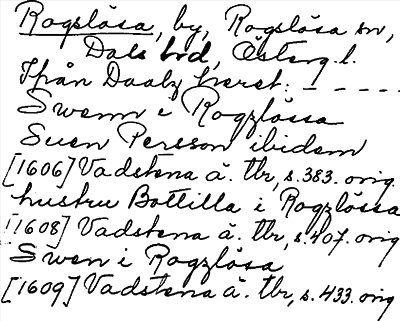 Rogslösa, by, Rogslösa sn,
Dals hrd, Österg.l.
Ifrån Daalz heret: - - - -
Swenn i Rogzlössa
Suen Persson ibidem
[1606] Vadstena ä. tbr, s. 383. orig.
hustru Bottilla i Rogzlössa
[1608] Vadstena ä. tbr, s. 407. orig
Swen i Rogzlösa
[1609] Vadstena ä. tbr, s. 433. orig